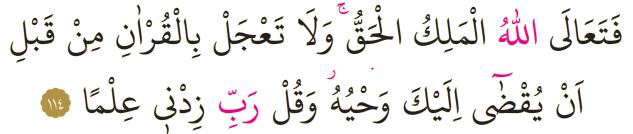 فَتَعَالَى اللّٰهُ الْمَلِكُ الْحَقُّۚ وَلَا تَعْجَلْ بِالْقُرْاٰنِ مِنْ قَبْلِ
اَنْ يُقْضٰٓى اِلَيْكَ وَحْيُهُۘ وَقُلْ رَبِّ زِدْن۪ي عِلْمًا ﴿١١٤﴾